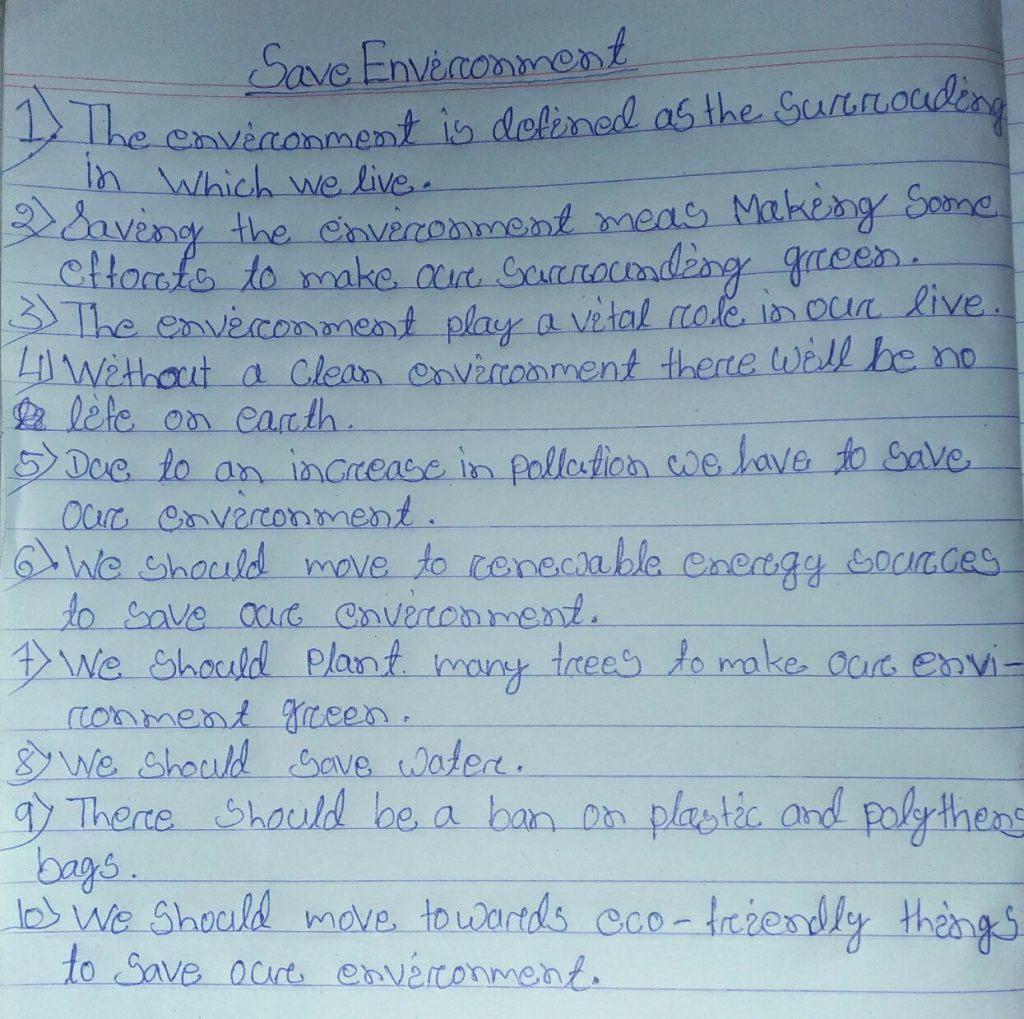 Save Environment
1) The environment is defined as the surrouding
in which we live.
2) Saving the environment meas Making Some
efforts to make our Surrounding green.
3) The environment play a vital role in our live.
4) Without a Clean environment there will be no
life on earth.
5) Due to an increase in pollution we have to save
our environment.
6) We should move to renewable energy sources
to save our environment.
7) We should plant many trees to make our envi-
ronment green.
8) We should save water.
9) There should be a ban on plastic and polythens
bags.
10) We should move towards eco-friendly things
to save our environment.